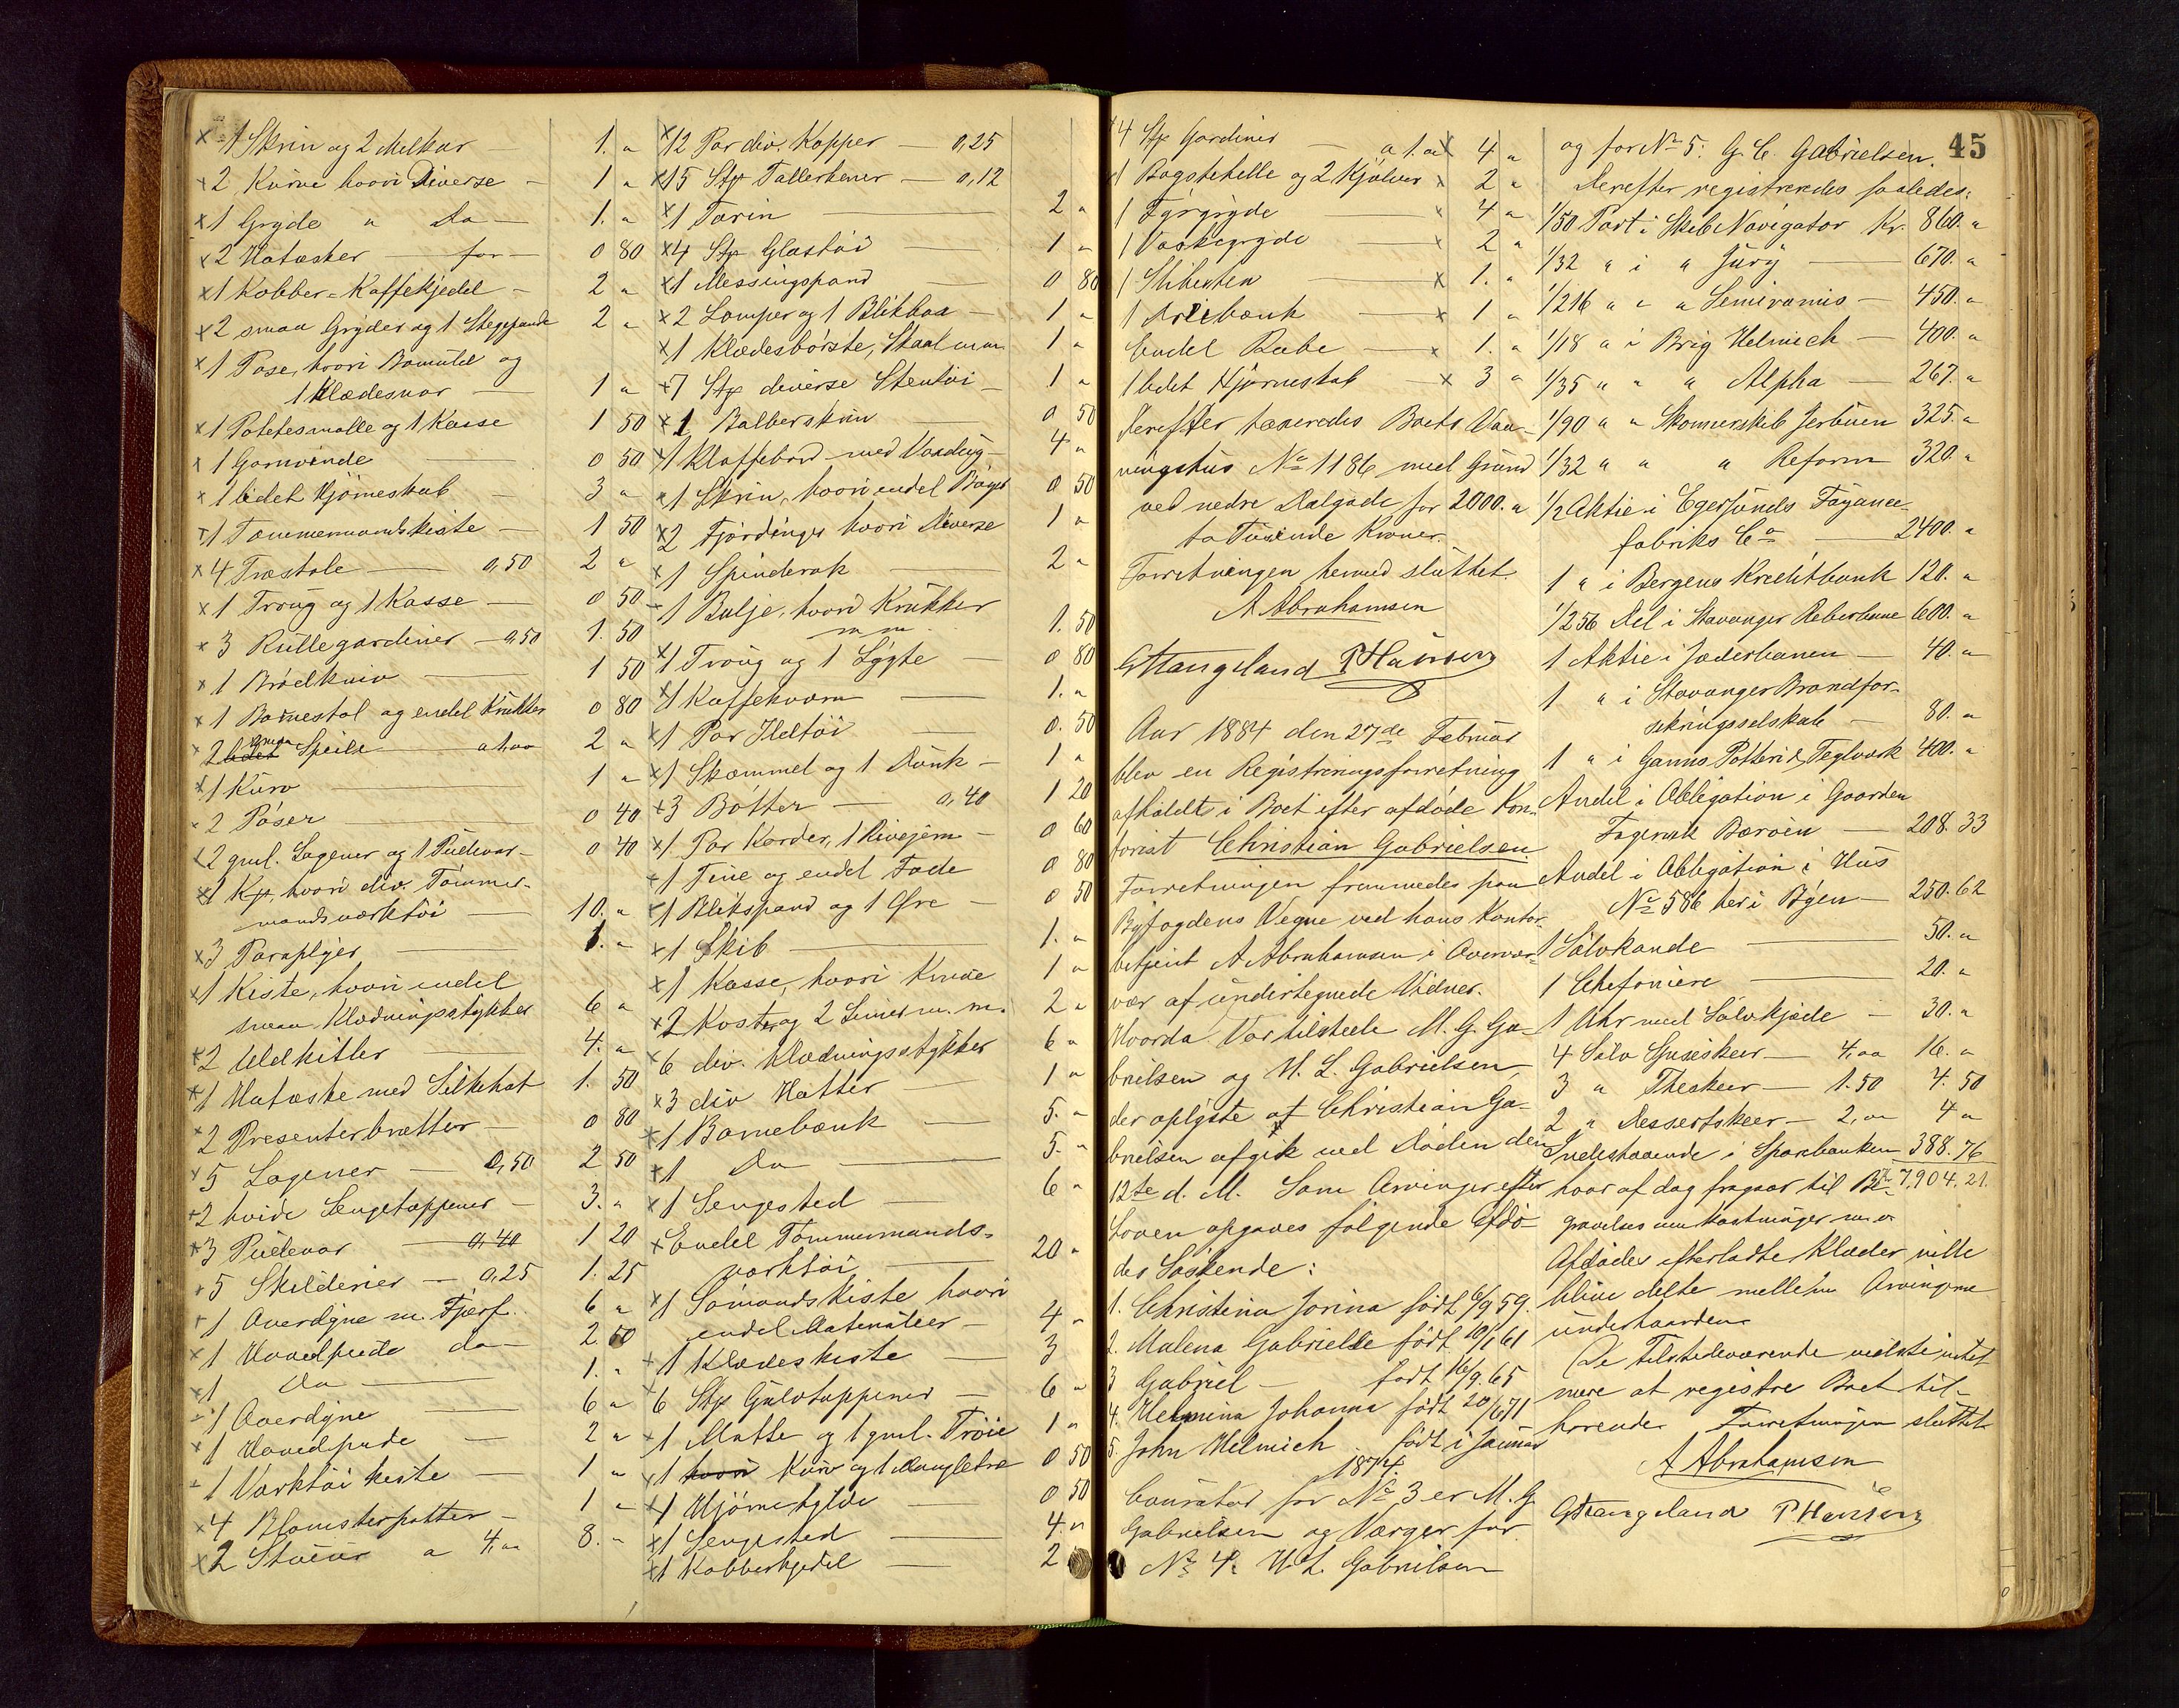 × 1 Skrin og 2 Melkar — 1. "
× 2 Kurve hvori Diverse — 1 "
× 1 Gryde " Do — 1. "
× 2 Hatæsker — for — 0 80
× 1 Kobber=Kaffekjedel — 2 "
× 2 smaa Gryder og 1 Stegepande 2 "
× 1 Pose, hvori Bomuld og
1 Klædesnor — 1 "
× 1 Potetesmolle og 1 Kasse 1 50
× 1 Garnvinde — 0 50
× 1 lidet Hjörneskab — 3 "
× 1 Tømmermandskiste — 1 50
× 4 Træstole — 0,50 2 "
× 1 Troug og 1 Kasse — 0 50
× 3 Rullegardiner — 0,50 1. 50
× 1 Brödkniv — 1 50
× 1 Barnestol og endel Krukker 0 80
× 2 smaa Speile a 1.00 2 "
× 1 Kurv — 1 "
× 2 Poser — 0 40
× 2 gml. Lagener og 1 Pudevar — 0 40
× 1 Kp, hvori div. Tömmer-
mandsværktöi — 10. "
× 3 Paraplyer — 1. "
× 1 Kiste, hvori endel
smaa Klædningsstykker 6 "
× 2 Uldkitler — 4. "
× 1 Hatæske med Silkehat 1. 50
× 2 Presenterbrætter — 0 80
× 5 Lagener — 0,50 2 50
× 2 hvide Sengetæppener — 3. "
× 3 Pudevar — 0,40 1 20
× 5 Skilderier — 0,25 1. 25
× 1 Overdyne m. Fjærf. 6 "
× 1 Hovedpude do — 2. 50
× 1 Do — 1. "
× 1 Overdyne — 6 "
× 1 Hovedpude — 2 "
× 1 Værktöikiste — 1 "
× 4 Blomsterpotter — 1 "
× 2 Stuer a 4,00 8. "
× 12 Par div. Kopper — 0,25
× 15 Stp Tallerkener — 0,12
× 1 Tarin — 2 "
× 4 Stp Glastöi — 1 "
× 1 Messingpand — 0 80
× 2 Lamper og 1 Blikbox — 1 "
× 1 Klædesbörste, Skaal m.m. 1 "
× 7 Stp diverse Stentöi — 1 "
× 1 Balberskrin — 0 50
× 1 Klaffebord med Voxdug — 4 "
× 1 Skrin, hvori endel Böger 0 50
× 2 Fjordinger hvori Diverse 1 "
× 1 Spinderok — 2 "
— 1 Balje, hvori Krukker
m m. 1. 50
× 1 Troug og 1 Lygte — 0 80
× 1 Kaffekværn — 1. "
× 1 Par Ildtöi — 0. 50
× 1 Skammel og 1 Dunk — 1 "
× 3 Bötter — 0,40 1 20
× 1 Par Karder, 1 Rivejern — 0 60
× 1 Tine og endel Fade 0 80
× 1 Blikspand og 1 Öre — 0 50
× 1 Skib — 1. "
× 1 Kasse, hvori Knive 1 "
× 2 Koste og 2 Liner m.m. 2 "
× 6 div. Klædningsstykker 6 "
× 3 div Hatter — 1 "
× 1 Barnebænk — 5. "
× 1 Do — 5. "
× 1 Sengested — 6 "
× Endel Tömmermands-
værktöi — 20 "
× 1 Sömandskiste hvori
endel Materialier — 4 "
× 1 Klædeskiste — 3
× 6 Stp Gulvtæppener — 6 "
× 1 Matte og 1 gml. Tröie 1 "
× 1 hvori Kurv og 1 Mangletræ 0 50
× 1 Hjörnehylde — 0 50
× 1 Sengested — 4. "
× 1 Kobberkjedel — 2
× 4 Stp Gardiner — a 1.00 × 4 "
1 Bagstehelle og 2 Kjölver × 2 "
1 Fyrgryde — × 4 "
1 Vaskegryde — × 2 "
1 Slibesten — × 1. "
1 Dreiebænk — × 1 "
Endel Ræbe — × 1. "
1 lidet Hjörneskab — × 3 "
Derefter taxeredes Boets Vaa-
ningshus No 1186 med Grund
ved nedre Dalgade for 2000. "
to Tusinde Kroner.
Forretningen hermed sluttet.
A Abrahamsen
G Stangeland P Hansen
Aar 1884 den 27de Februar
blev en Registreringsforretning
afholdt i Boet efter afdöde Kon-
torist Christian Gabrielsen.
Forretningen fremmedes paa
Byfogdens Vegne ved hans Kontor-
betjent A Abrahamsen i Overvær-
vær af undertegnede Vidner.
Hvorda Var tilstede M. G. Ga-
brielsen og H. L. Gabrielsen,
der oplyste at Christian Ga-
brielsen afgik ved Döden den
12te d. M. Som Arvinger efter
Loven opgaves fölgende Afdö-
des Söskende:
1. Christina Jorina födt 6/9 59.
2. Malena Gabrielle födt 10/1 61
3 Gabriel — födt 16/9. 65
4. Helmina Johanna födt 20/6 71
5. John Helmich födt i Januar
1874.
Courator for No 3 er M. G.
Gabrielsen og Værger for
No 4. H. L. Gabrielsen
45
og for No 5. G. C. Gabrielsen.
Derefter registreredes saaledes:
1/50 Part i Skib Navigator Kr. 860. "
1/32 " i " Jury — 670. "
1/216 " " " Semiramis — 450. "
1/18 " i Brig Helmich — 400. "
1/35 " " " Alpha — 267. "
1/90 " " Skonnerskib Jerbuen 325. "
1/32 " " " Reform 320. "
1/2 Aktie i Egersunds Fayance-
fabriks Co — 2400. "
1 " i Bergens Kreditbank 120. "
1/256 Del i Stavanger Reberbane 600. "
1 Aktie i Jæderbanen — 40. "
1 " i Stavanger Brandfor-
sikringsselskab — 80. "
1 " i Ganns Potteri & Teglværk 400. "
Andel i Obligation i Gaarden
Fagervik Bæröen — 208. 33
Andel i Obligation i Hus
No 586 her i Byen — 250. 62
1 Sölvkande — 50. "
1 Chefoniere — 20. "
1 Uhr med Sölvkjæde — 30. "
4 Sölv Spiseskeer — 4,00 16. "
3 " Theskeer — 1.50 4. 50
2 " Dessertskeer — 2,00 4 "
Indestaaende i Sparebanken 388. 76
hvor af dog fragaar til Be- 7,904. 21.
gravelsesomkostninger m.v.
Afdödes efterladte Klæder vilde
blive delte mellem Arvingerne
underhaanden.
De Tilstedeværende vidste intet
mere at registre Boet til-
hörende. Forretningen sluttet
A Abrahamsen
G Stangeland P. Hansen